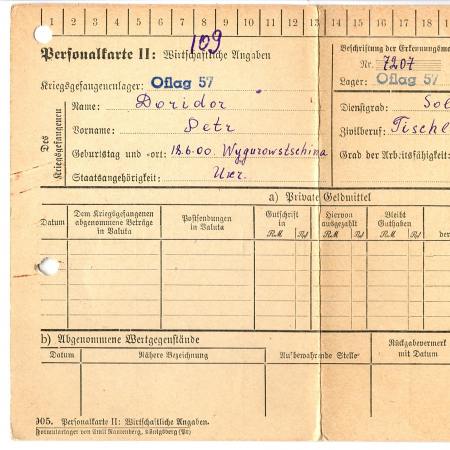 1 2 3 4 5 6 7 8 9 10 11 12 13 14 15 16 17 18
109
Personalkarte II: Wirtschaftliche Angaben
Beschriftung der Erkennungsma
Nr. 7207
Kriegsgefangenenlager: Oflag 57
Lager: Oflag 57
Des Kriegsgefangenen
Name: Doridor
Dienstgrad: Sol
Vorname: Petr
Zivilberuf: Tischl
Geburtstag und -ort: 18.6.00. Wygurowstschina
Grad der Arbeitsfähigkeit:
Staatsangehörigkeit: Ukr.
a) Private Geldmittel
Datum
Dem Kriegsgefangenen abgenommene Beträge in Valuta
Postsendungen in Valuta
Gutschrift in
RM Rpf
Hiervon ausgezahlt
RM Rpf
Bleibt Guthaben
RM Rpf
der
b) Abgenommene Wertgegenstände
Datum
Nähere Bezeichnung
Aufbewahrende Stelle
Rückgabevermerk mit Datum
905. Personalkarte II: Wirtschaftliche Angaben.
Formularlager von Emil Rautenberg, Königsberg (Pr)